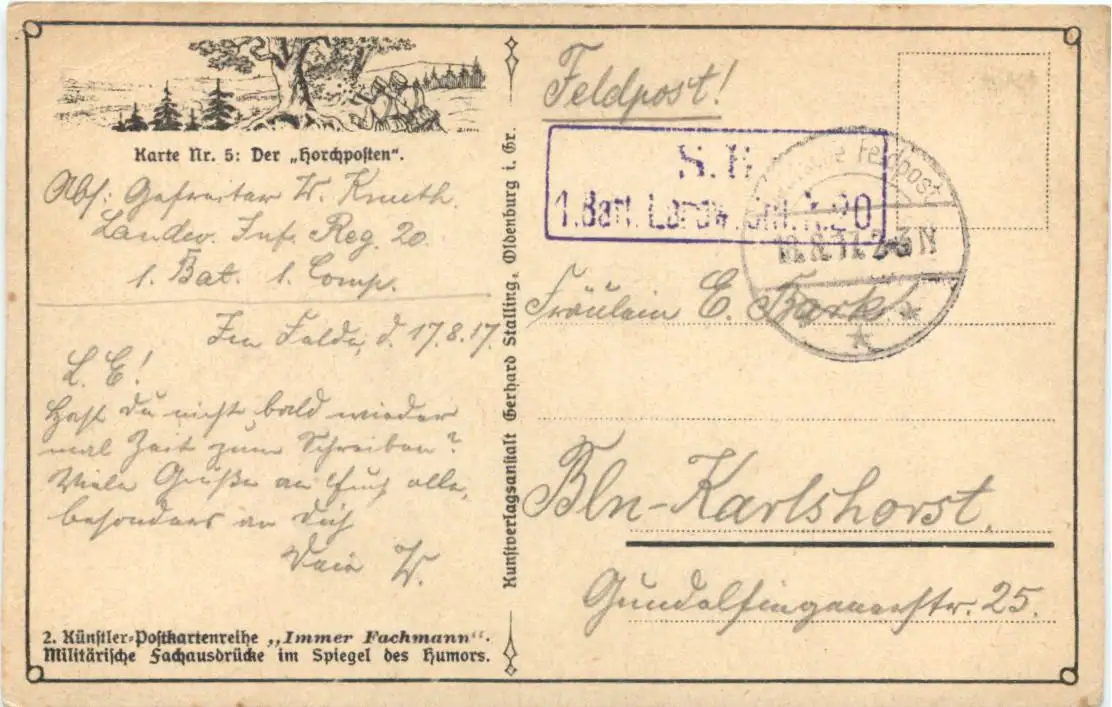 Karte Nr. 5: Der „Horchposten“.
Abs: Gefreiter W. Kmeth.
Landw. Inf. Reg. 20.
1. Bat. 1. Comp.
Im Felde, d. 17.8.17.
L. E!
Hast Du nicht bald wieder
mal Zeit zum Schreiben?
Viele Grüße an Euch alle,
besonders an Dich
Dein W.
2. Künstler-Postkartenreihe „Immer Fachmann“.
Militärische Fachausdrücke im Spiegel des Humors.
Kunstverlagsanstalt Gerhard Stalling, Oldenburg i. Gr.
Feldpost!
S.B.
1. Batl. Landw. 20
Feldpost
18.8.17. 2-3 N
Fräulein E. Bark
Bln-Karlshorst.
Gundelfingenerstr. 25.